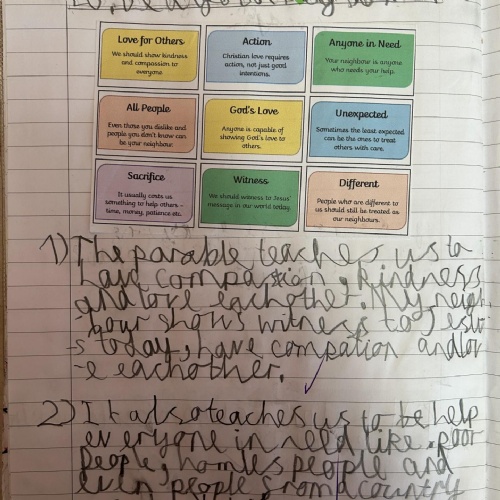 Love for Others
We should show kindness
and compassion to
everyone
Action
Christian love requires
action, not just good
intentions.
Anyone in Need
Your neighbour is anyone
who needs your help.
All People
Even those you dislike and
people you don't know can
be your neighbour.
God's Love
Anyone is capable of
showing God's love to
others.
Unexpected
Sometimes the least expected
can be the ones to treat
others with care.
Sacrifice
It usually costs us
something to help others -
time, money, patience etc.
Witness
We should witness to Jesus'
message in our world today
Different
People who are different to
us should still be treated as
our neighbours.
1) The parable teaches us to
have compassion, kindness
and love eachother. My neigh
-bour shows witness to Jesu-
s today, have compation and lov
-e eachother.
2) It also teaches us to be help
everyone in need like poor
people, homles people and
even people from a country